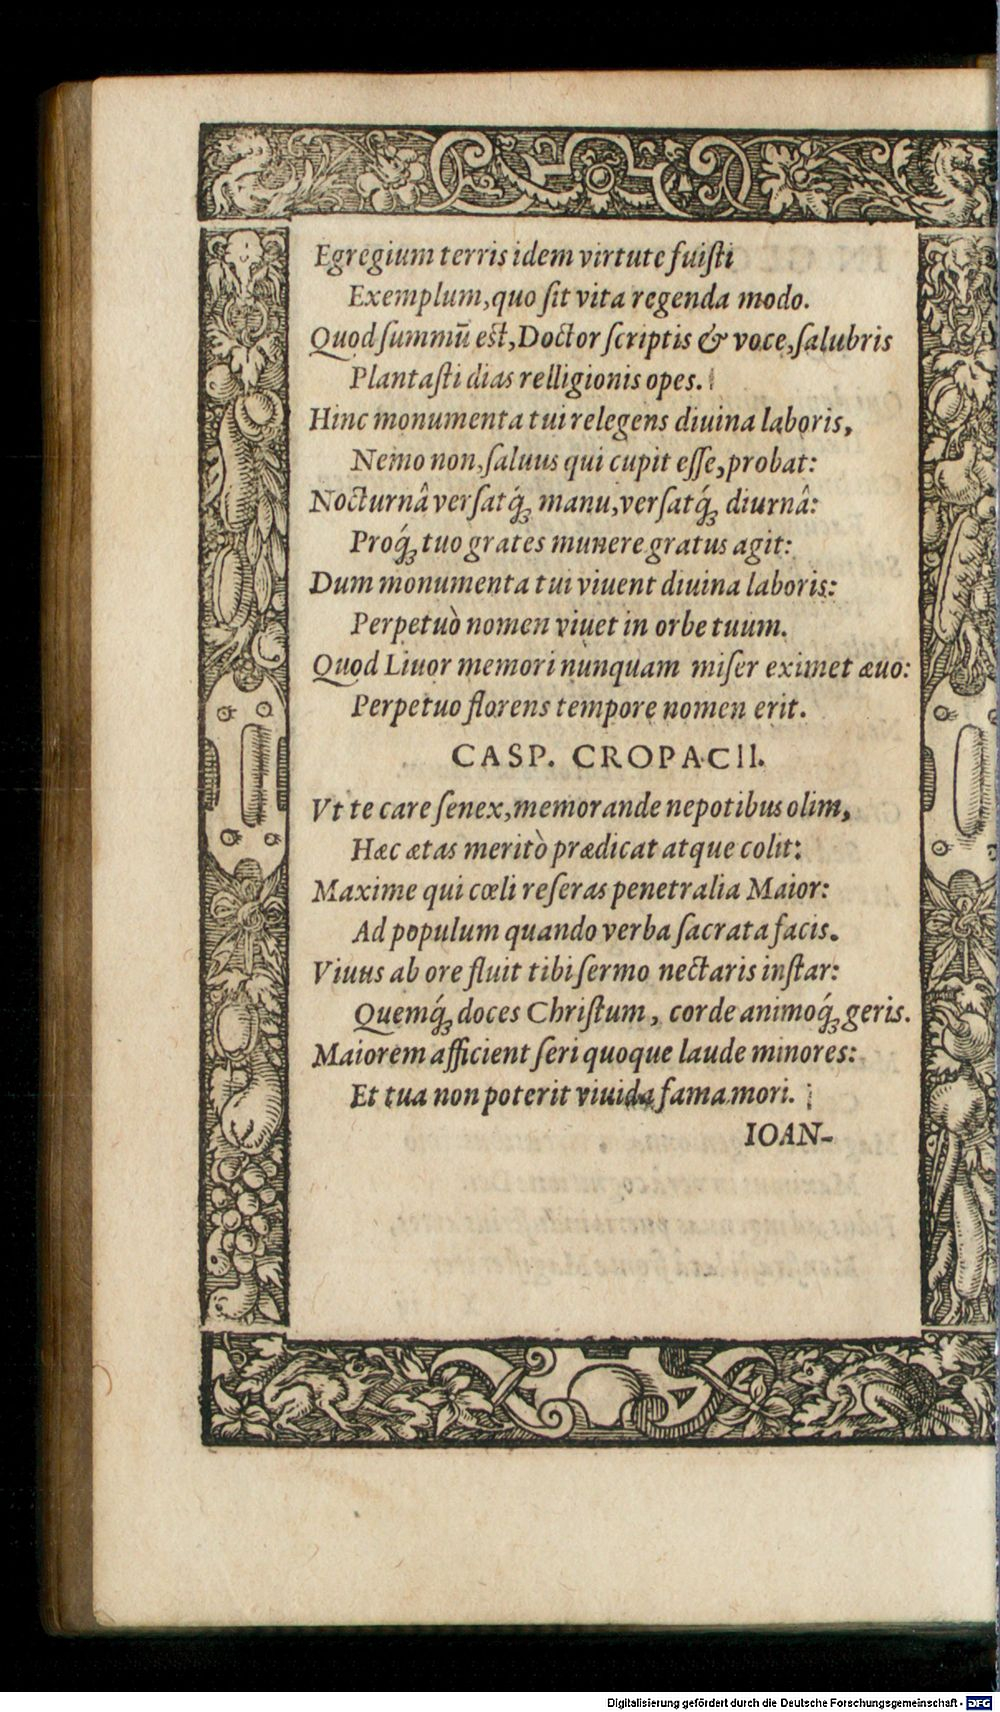 Egregium terris idem virtute fuiſti
Exemplum, quo ſit vita regenda modo.
Quod ſummū est, Doctor ſcriptis & voce, ſalubris
Plantaſti dias relligionis opes.
Hinc monumenta tui relegens diuina laboris,
Nemo non, ſaluus qui cupit eſſe, probat:
Nocturnâ verſatq́ꝫ manu, verſatq́ꝫ diurnâ:
Proq́ꝫ tuo grates munere gratus agit:
Dum monumenta tui viuent diuina laboris:
Perpetuò nomen viuet in orbe tuum.
Quod Liuor memori nunquam miſer eximet æuo:
Perpetuo florens tempore nomen erit.
CASP. CROPACII.
Vt te care ſenex, memorande nepotibus olim,
Hæc ætas meritò prædicat atque colit:
Maxime qui cœli reſeras penetralia Maior:
Ad populum quando verba ſacrata facis.
Viuus ab ore fluit tibi ſermo nectaris inſtar:
Quemq́ꝫ doces Chriſtum, corde animoq́ꝫ geris.
Maiorem afficient ſeri quoque laude minores:
Et tua non poterit viuida fama mori.
IOAN-
Digitalisierung gefördert durch die Deutsche Forschungsgemeinschaft - DFG